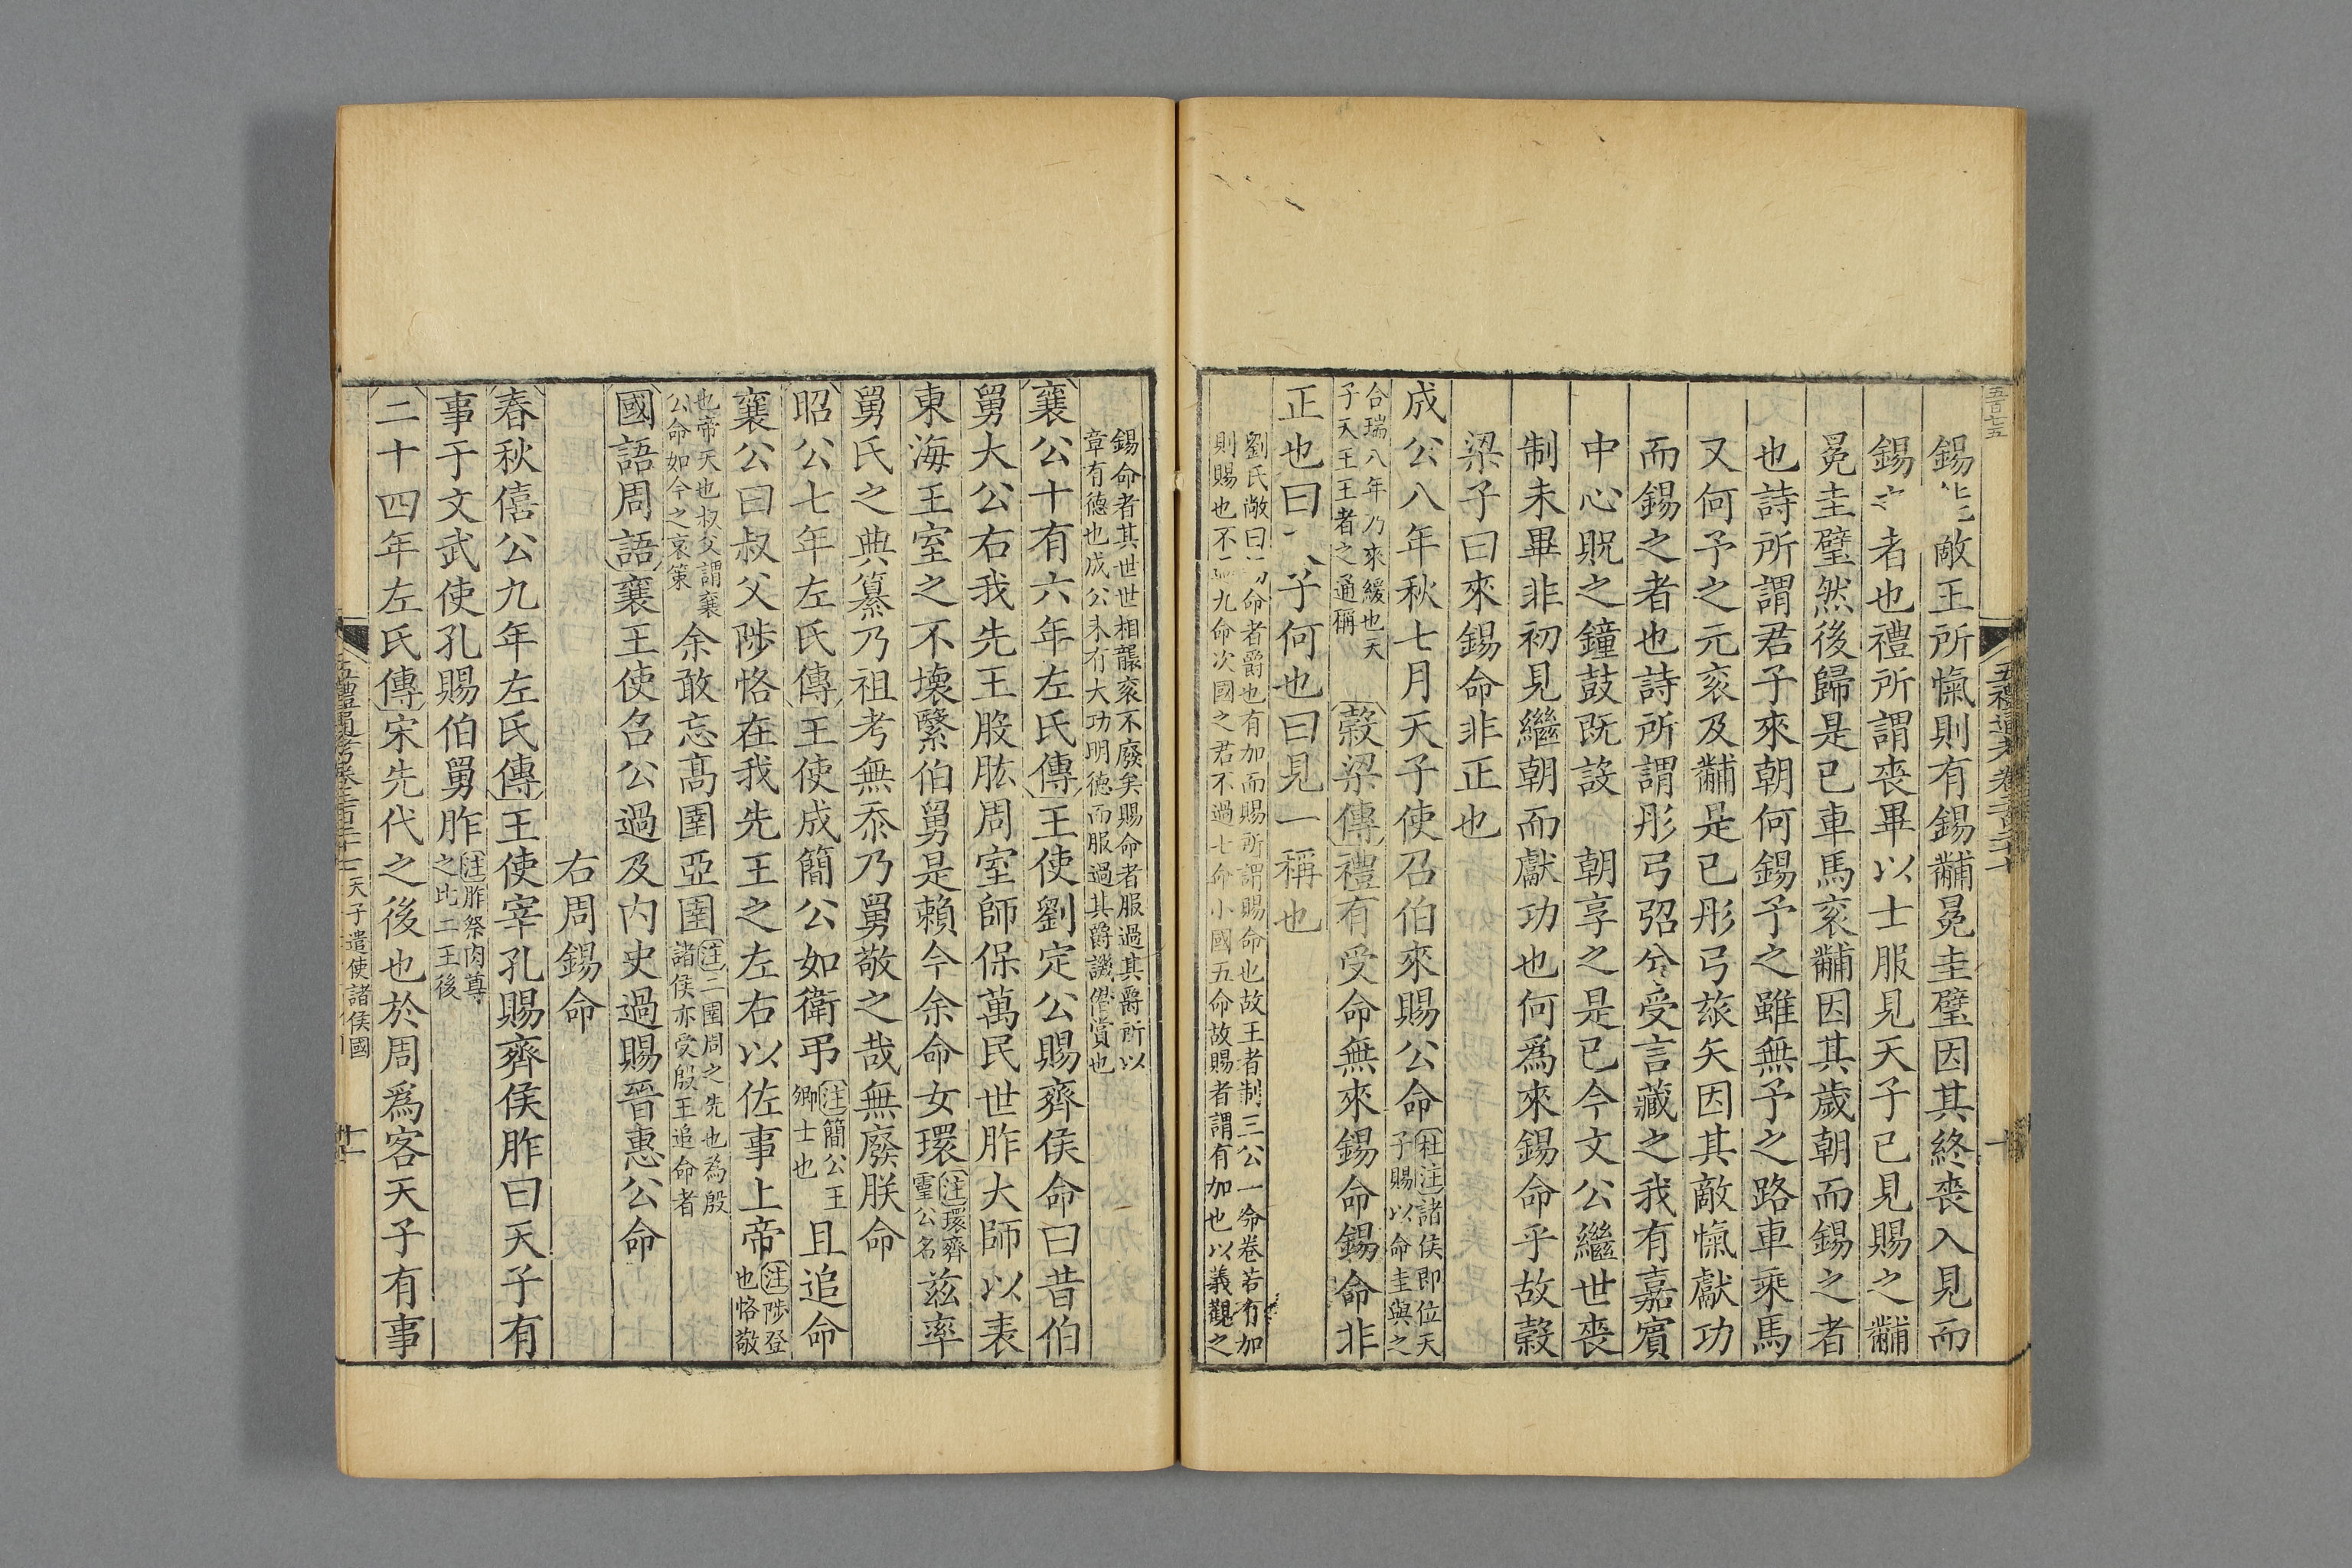 五百七五
錫 敵王所愾則有錫黼冕圭璧因其終喪入見而
錫 者也禮所謂喪畢以士服見天子已見賜之黼
冕圭璧然後歸是已車馬衮黼因其歲朝而錫之者
也詩所謂君子來朝何錫予之雖無予之路車乘馬
又何予之元衮及黼是已彤弓旅矢因其敵愾獻功
而錫之者也詩所謂彤弓弨兮受言藏之我有嘉賓
中心貺之鐘鼓既設 朝享之是已今文公繼世喪
制未畢非初見繼朝而獻功也何為來錫命乎故榖
梁子曰來錫命非正也
成公八年秋七月天子使召伯來賜公命
杜注諸侯即位天
子賜以命圭與之
合瑞八年乃來緩也天
子天王王者之通稱
榖梁傳禮有受命無來錫命錫命非
正也曰 子何也曰見一稱也
劉氏敞曰 命者爵也有加而賜所謂賜命也故王者制三公一命卷若有加
則賜也不 九命次國之君不過七命小國五命故賜者謂有加也以義觀之
五禮通考 卷二百二十
十
錫命者其世世相襲衮不廢矣賜命者服過其爵所以
章有德也成公未有大功明德而服過其爵譏僭賞也
襄公十有六年左氏傳王使劉定公賜齊侯命曰昔伯
舅大公右我先王股肱周室師保萬民世胙大師以表
東海王室之不壞繄伯舅是賴今余命女環
注環齊
靈公名
茲率
舅氏之典纂乃祖考無忝乃舅敬之哉無廢朕命
昭公七年左氏傳王使成簡公如衛弔
注簡公王
卿士也
且追命
襄公曰叔父陟恪在我先王之左右以佐事上帝
注陟登
也恪敬
也帝天也叔父謂襄
公命如今之哀策
余敢忘高圉亞圉
注二圉周之先也為殷
諸侯亦受殷王追命者
國語周語襄王使召公過及内史過賜晉惠公命
右周錫命
春秋僖公九年左氏傳王使宰孔賜齊侯胙曰天子有
事于文武使孔賜伯舅胙
注胙祭肉尊
之比二王後
二十四年左氏傳宋先代之後也於周為客天子有事
五禮通考卷二百二十 天子遣使諸侯國
十一